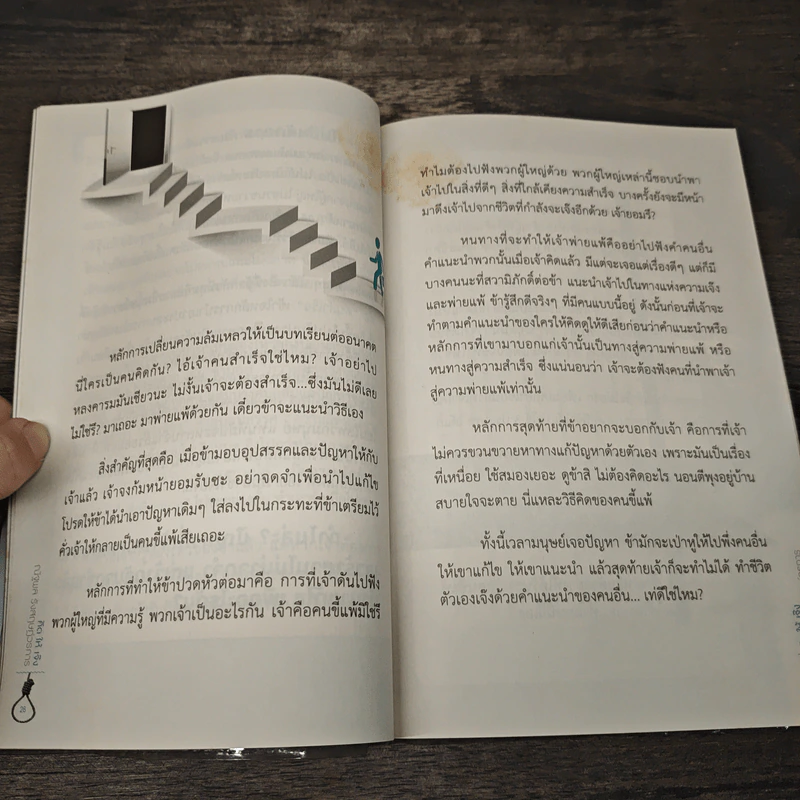 หลักการเปลี่ยนความล้มเหลวให้เป็นบทเรียนต่ออนาคต
นี่ใครเป็นคนคิดกัน? ไอ้เจ้าคนสำเร็จใช่ไหม? เจ้าอย่าไป
หลงคารมมันเชียวนะ ไม่งั้นเจ้าจะต้องสำเร็จ...ซึ่งมันไม่ดีเลย
ไม่ใช่รึ? มาเถอะ มาพ่ายแพ้ด้วยกัน เดี๋ยวข้าจะแนะนำวิธีเอง
สิ่งสำคัญที่สุดคือ เมื่อข้ามอบอุปสรรคและปัญหาให้กับ
เจ้าแล้ว เจ้าจงก้มหน้ายอมรับซะ อย่าจดจำเพื่อนำไปแก้ไข
โปรดให้ข้าได้นำเอาปัญหาเดิมๆ ใส่ลงไปในกระทะที่ข้าเตรียมไว้
คั่วเจ้าให้กลายเป็นคนขี้แพ้เสียเถอะ
หลักการที่ทำให้ข้าปวดหัวต่อมาคือ การที่เจ้าดันไปฟัง
พวกผู้ใหญ่ที่มีความรู้ พวกเจ้าเป็นอะไรกัน เจ้าคือคนขี้แพ้มิใช่รึ
คิด ให้ เจ๊ง
26
ทำไมต้องไปฟังพวกผู้ใหญ่ด้วย พวกผู้ใหญ่เหล่านี้ชอบนำพา
เจ้าไปในสิ่งที่ดีๆ สิ่งที่ใกล้เคียงความสำเร็จ บางครั้งยังจะมีหน้า
มาดึงเจ้าไปจากชีวิตที่กำลังจะเจ๊งอีกด้วย เจ้ายอมรึ?
หนทางที่จะทำให้เจ้าพ่ายแพ้คืออย่าไปฟังคำคนอื่น
คำแนะนำพวกนั้นเมื่อเจ้าคิดแล้ว มีแต่จะเจอแต่เรื่องดีๆ แต่ก็มี
บางคนนะที่สวามิภักดิ์ต่อข้า แนะนำเจ้าไปในทางแห่งความเจ๊ง
และพ่ายแพ้ ข้ารู้สึกดีจริงๆ ที่มีคนแบบนี้อยู่ ดังนั้นก่อนที่เจ้าจะ
ทำตามคำแนะนำของใครให้คิดดูให้ดีเสียก่อนว่าคำแนะนำหรือ
หลักการที่เขามาบอกแก่เจ้านั้นเป็นทางสู่ความพ่ายแพ้ หรือ
หนทางสู่ความสำเร็จ ซึ่งแน่นอนว่า เจ้าจะต้องฟังคนที่นำพาเจ้า
สู่ความพ่ายแพ้เท่านั้น
หลักการสุดท้ายที่ข้าอยากจะบอกกับเจ้า คือการที่เจ้า
ไม่ควรขวนขวายหาทางแก้ปัญหาด้วยตัวเอง เพราะมันเป็นเรื่อง
ที่เหนื่อย ใช้สมองเยอะ ดูช้าสิ ไม่ต้องคิดอะไร นอนตีพุงอยู่บ้าน
สบายใจจะตาย นี่แหละวิธีคิดของคนขี้แพ้
ทั้งนี้เวลามนุษย์เจอปัญหา ข้ามักจะเป่าหูให้ไปพึ่งคนอื่น
ให้เขาแก้ไข ให้เขาแนะนำ แล้วสุดท้ายเจ้าก็จะทำไม่ได้ ทำชีวิต
ตัวเองเจ๊งด้วยคำแนะนำของคนอื่น... เท่ดีใช่ไหม?